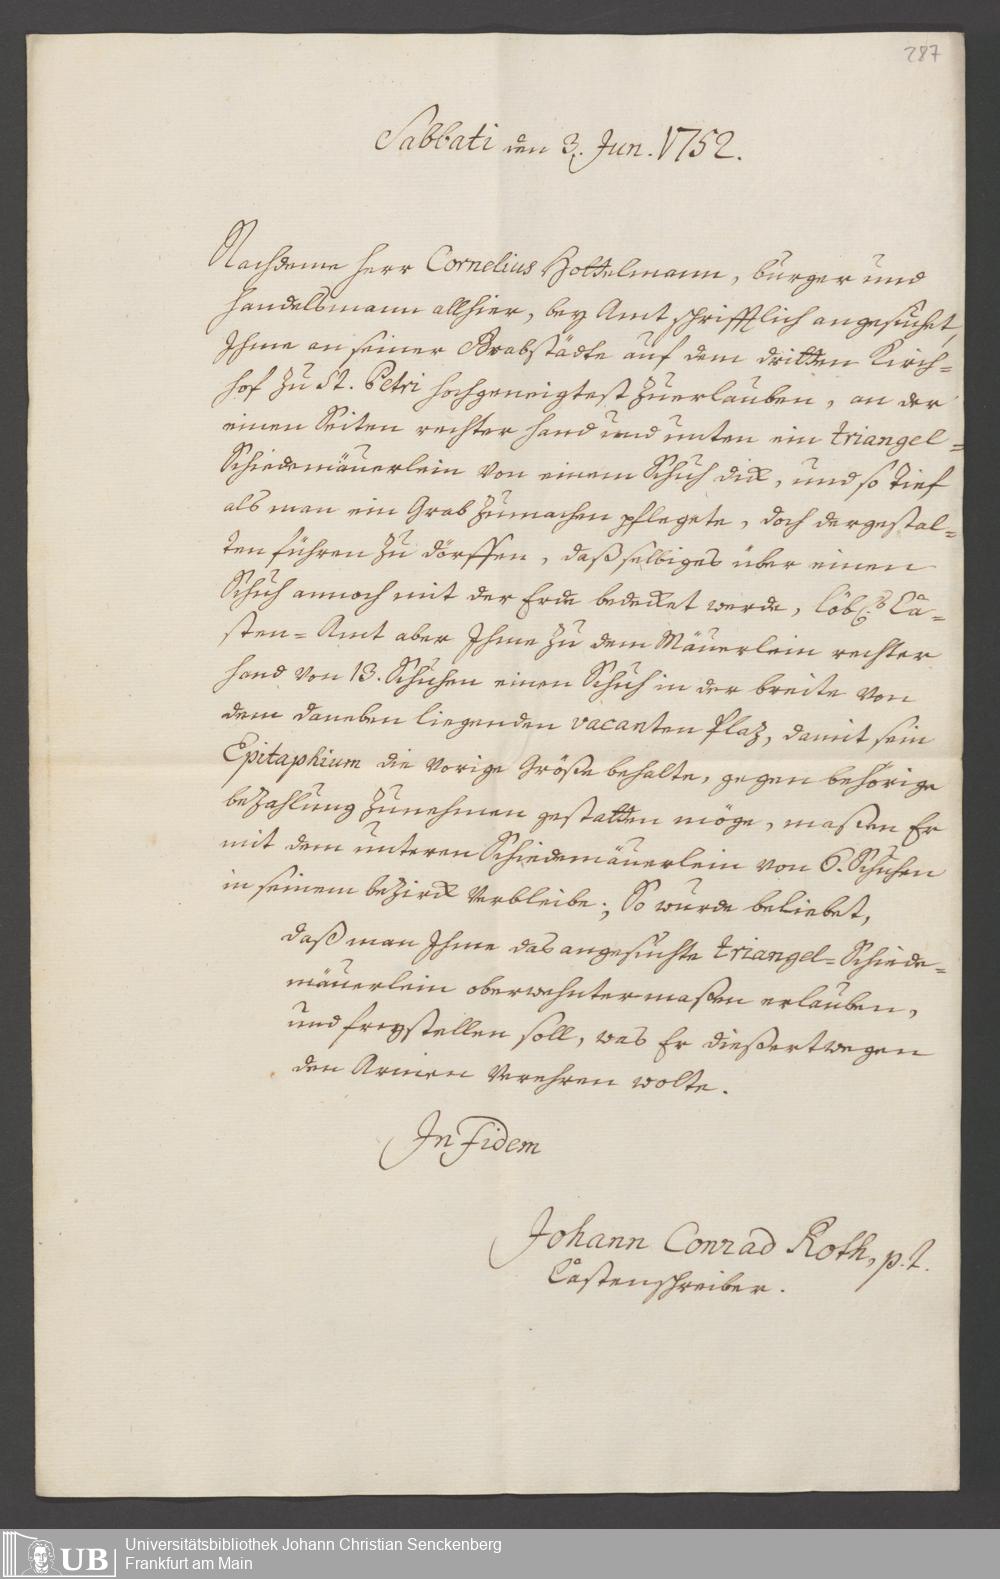 287
Sabbati den 3. Jun. 1752.
Nachdeme Herr Cornelius Hottelmann, burger und
Handelsmann allhier, bey Amt schrifftlich angesuchet,
Ihme an seiner Brabstädte auf dem dritten Kirch=
hof zu St. Petri hochgeneigtest zuerlauben, an der
einen Seiten rechter Hand und unten ein triangel=
Schiedemäuerlein von einem Schuh dick, und so tief
als man ein Grab zumachen pflegete, doch dergestal=
ten führen zu dörffen, daß selbiges über einen
Schuh annoch mit der Erde bedecket werde, löbl. Ca=
sten=Amt aber Ihme zu dem Mäuerlein rechter
Hand von 13. Schuhen einen Schuh in der breite von
dem daneben liegenden vacanten Plaz, damit sein
Epitaphium die vorige Größe behalte, gegen behörige
bezahlung zunehmen gestatten möge, maßen Er
mit dem unteren Schiedemäuerlein von 6. Schuhen
in seinem bezirck verbleibe; So wurde beliebet,
daß man Ihme das angesuchte triangel=Schiede=
mäuerlein oberwehntermaßen erlauben,
und freystellen soll, was Er dießertwegen
den Armen verehren wolte.
In Fidem
Johann Conrad Roth, p. t.
Castenschreiber.
UB
Universitätsbibliothek Johann Christian Senckenberg
Frankfurt am Main